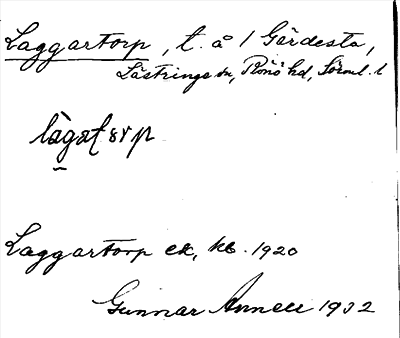 Laggartorp, t. å 1 Gärdesta,
Lästringe sn, Rönö hd, Sörml. l
Laggartorp ek, kb. 1920
Gunnar Annell 1932